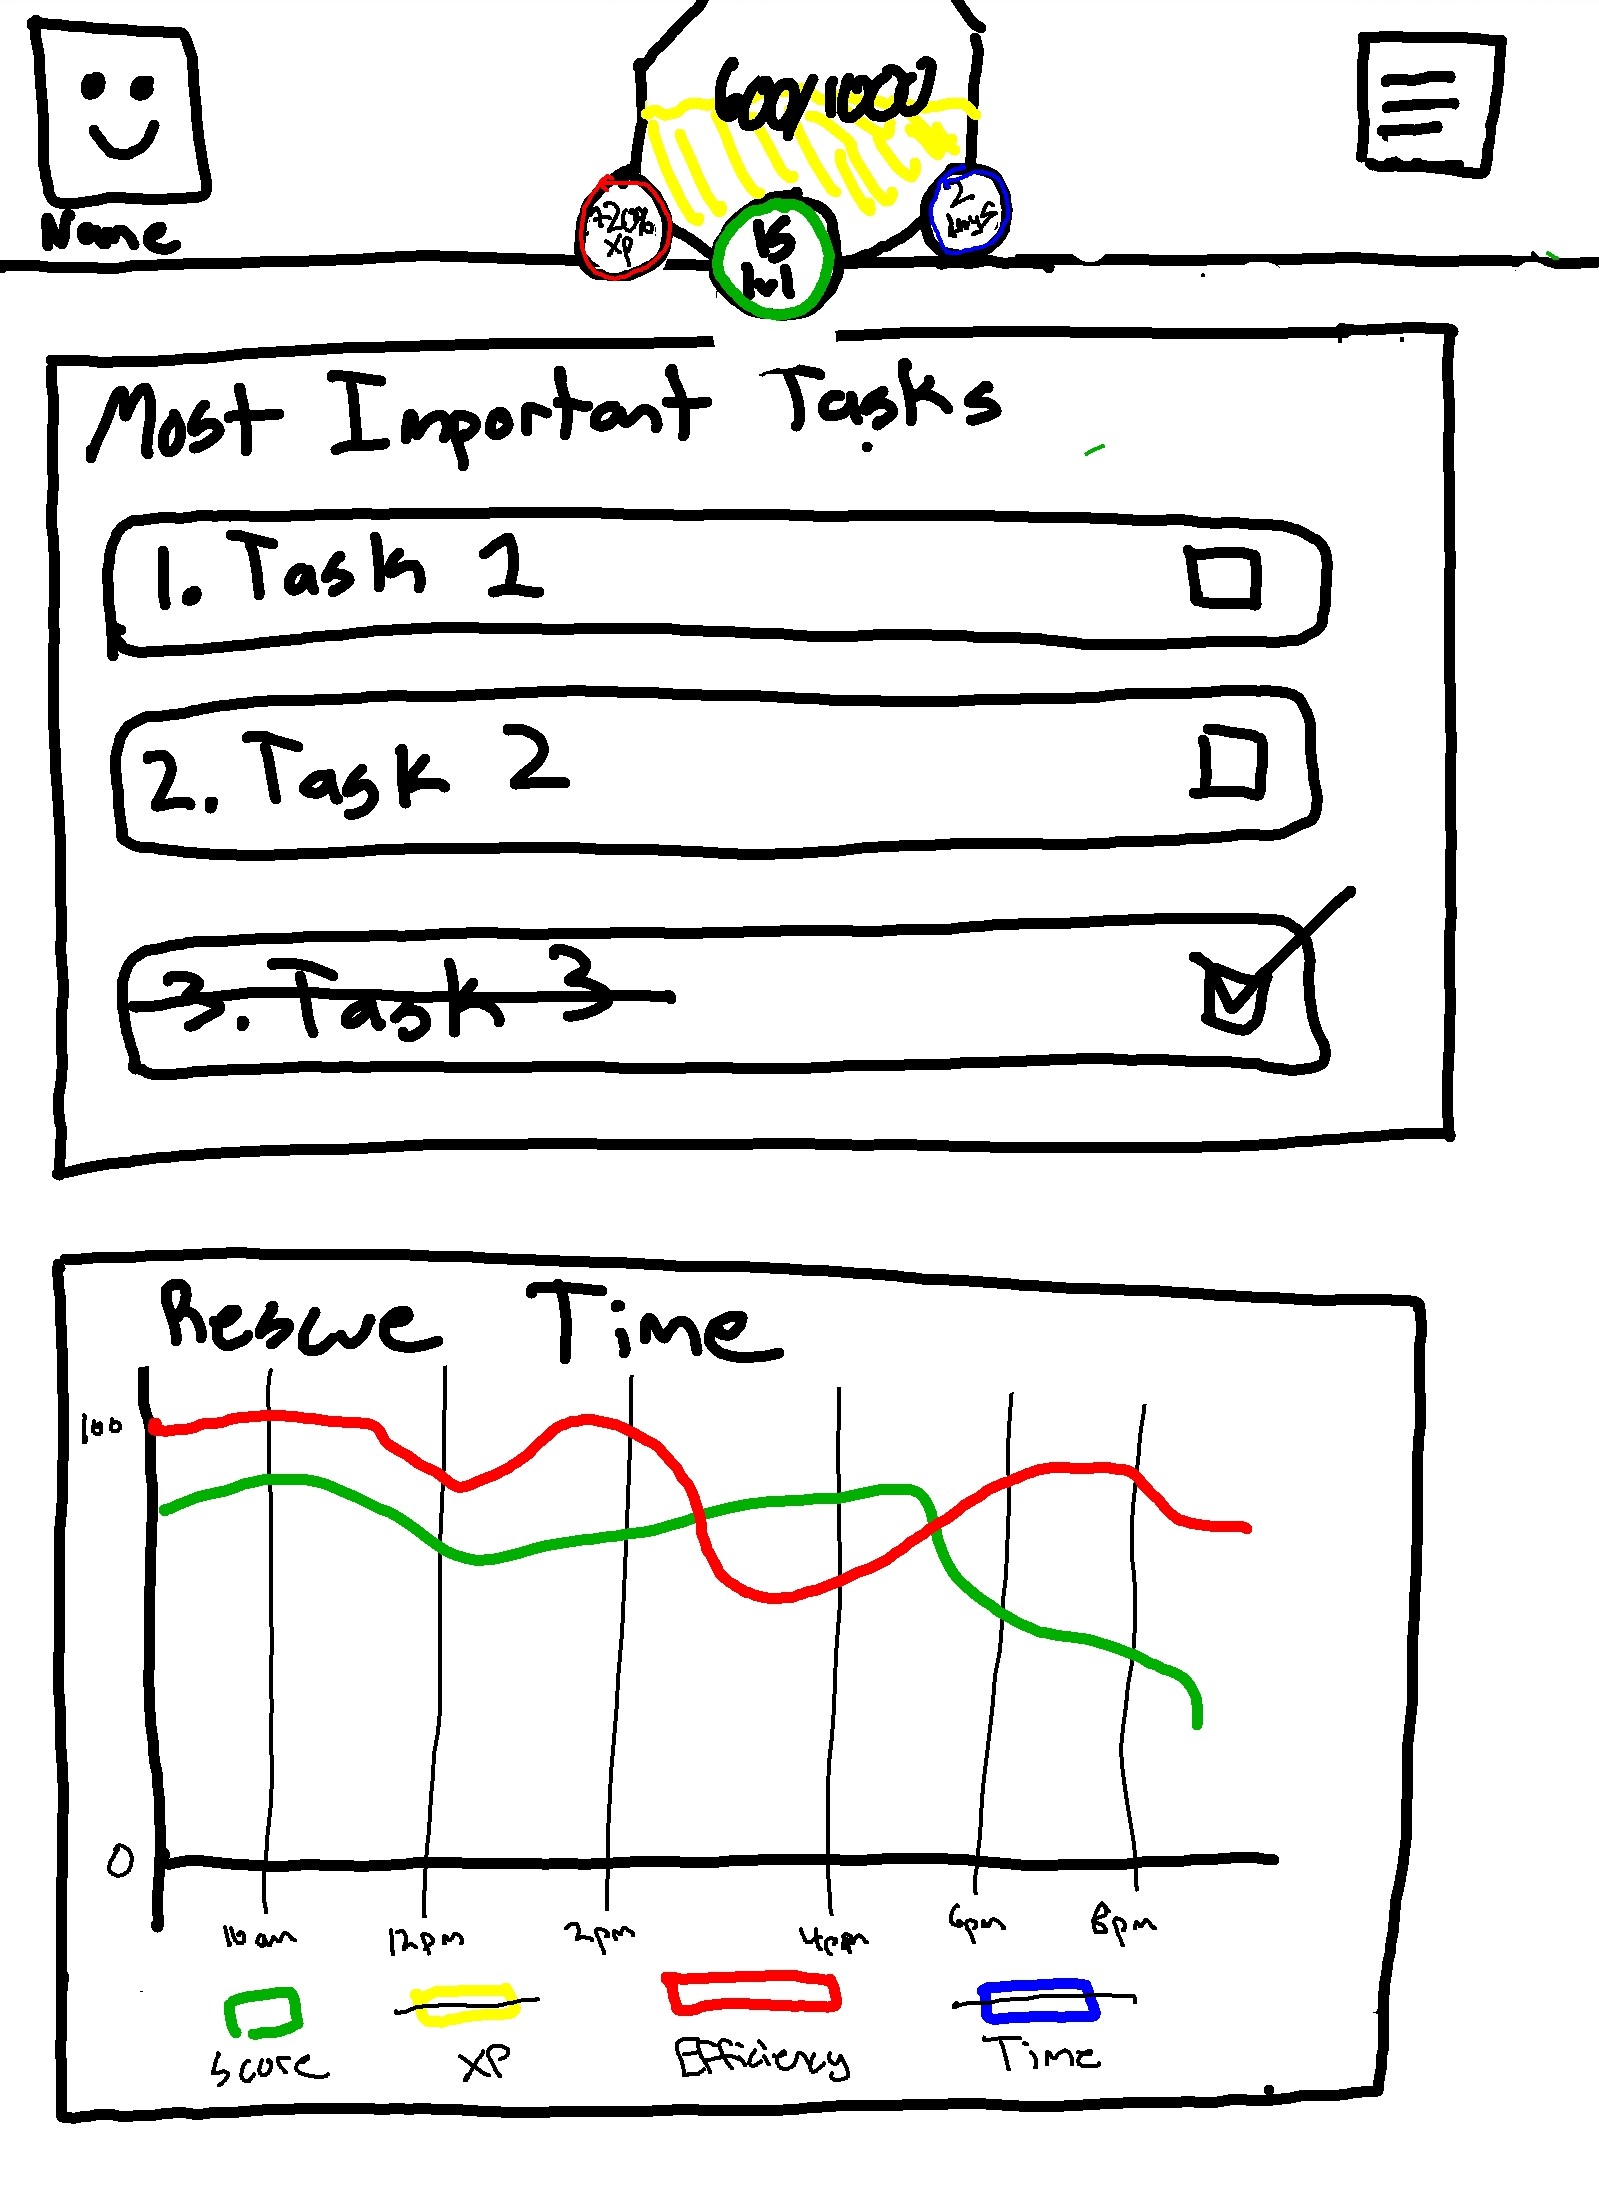 600/1000
Name
+20%
XP
15
lvl
2
days
Most Important Tasks
1. Task 1
2. Task 2
3. Task 3
Rescue Time
100
0
10am
12pm
2pm
4pm
6pm
8pm
Score
XP
Efficiency
Time